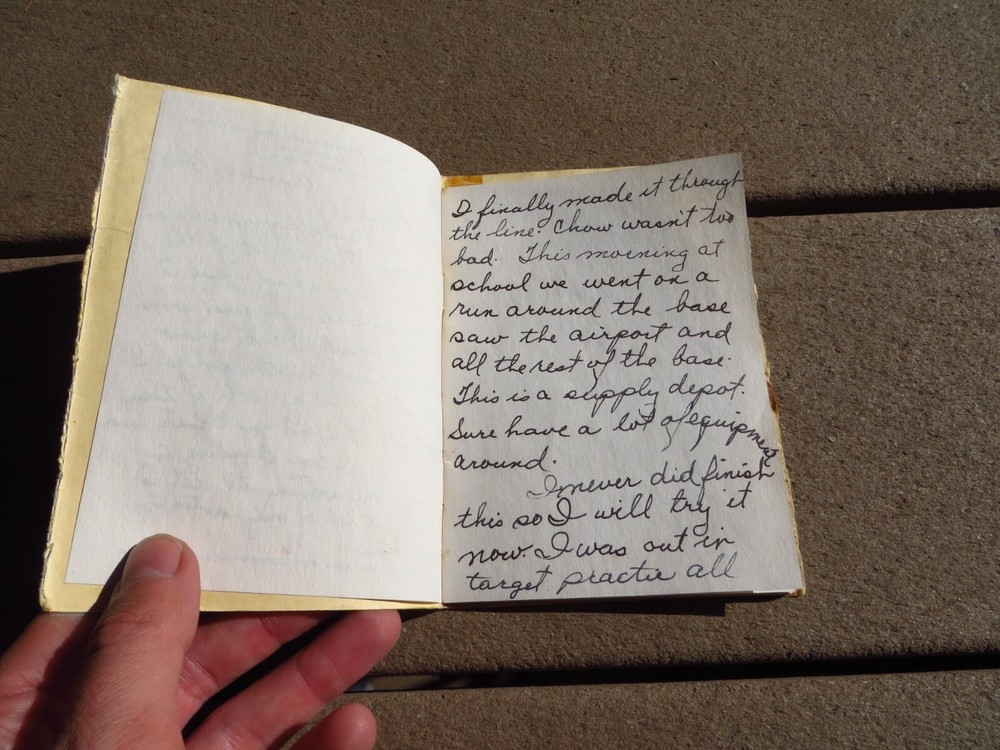 I finally made it through
the line. Chow wasn't too
bad. This morning at
school we went on a
run around the base
saw the airport and
all the rest of the base.
This is a supply depot.
Sure have a lot of equipment
around.
I never did finish
this so I will try it
now. I was out in
target practie all